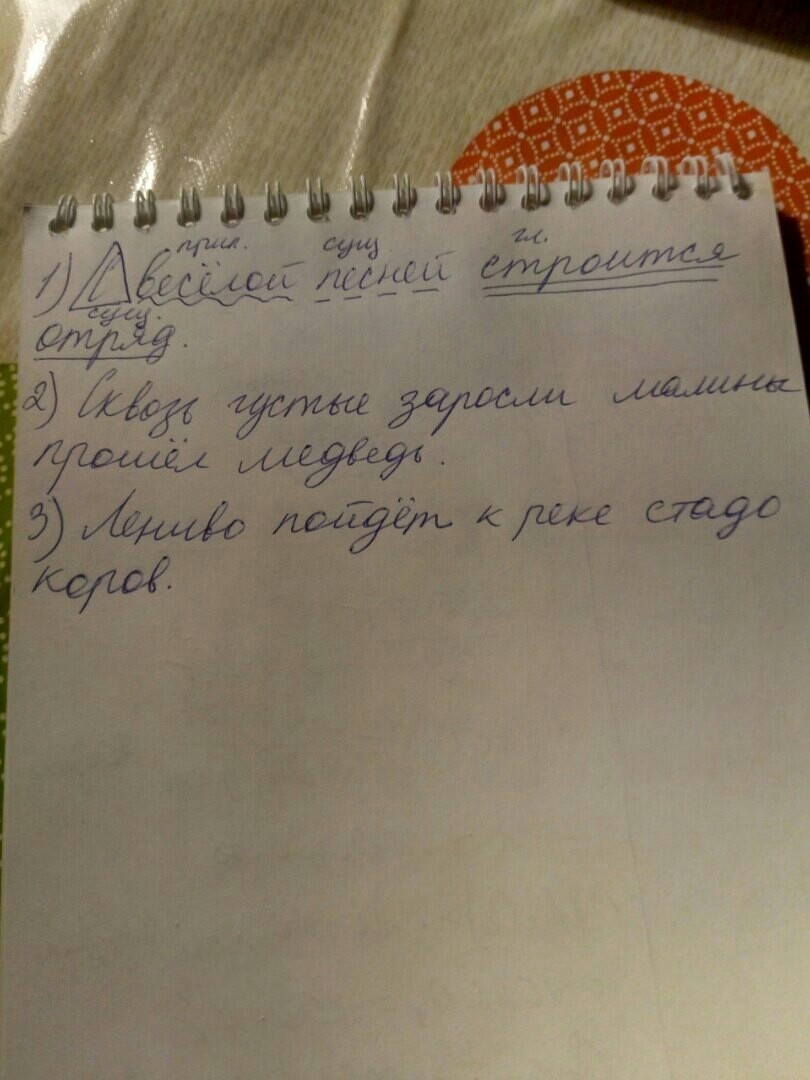 прил. сущ гл.
1) С весёлой песней строится
сущ.
отряд.
2) Сквозь густые заросли малины
прошёл медведь.
3) Лениво пойдёт к реке стадо
коров.